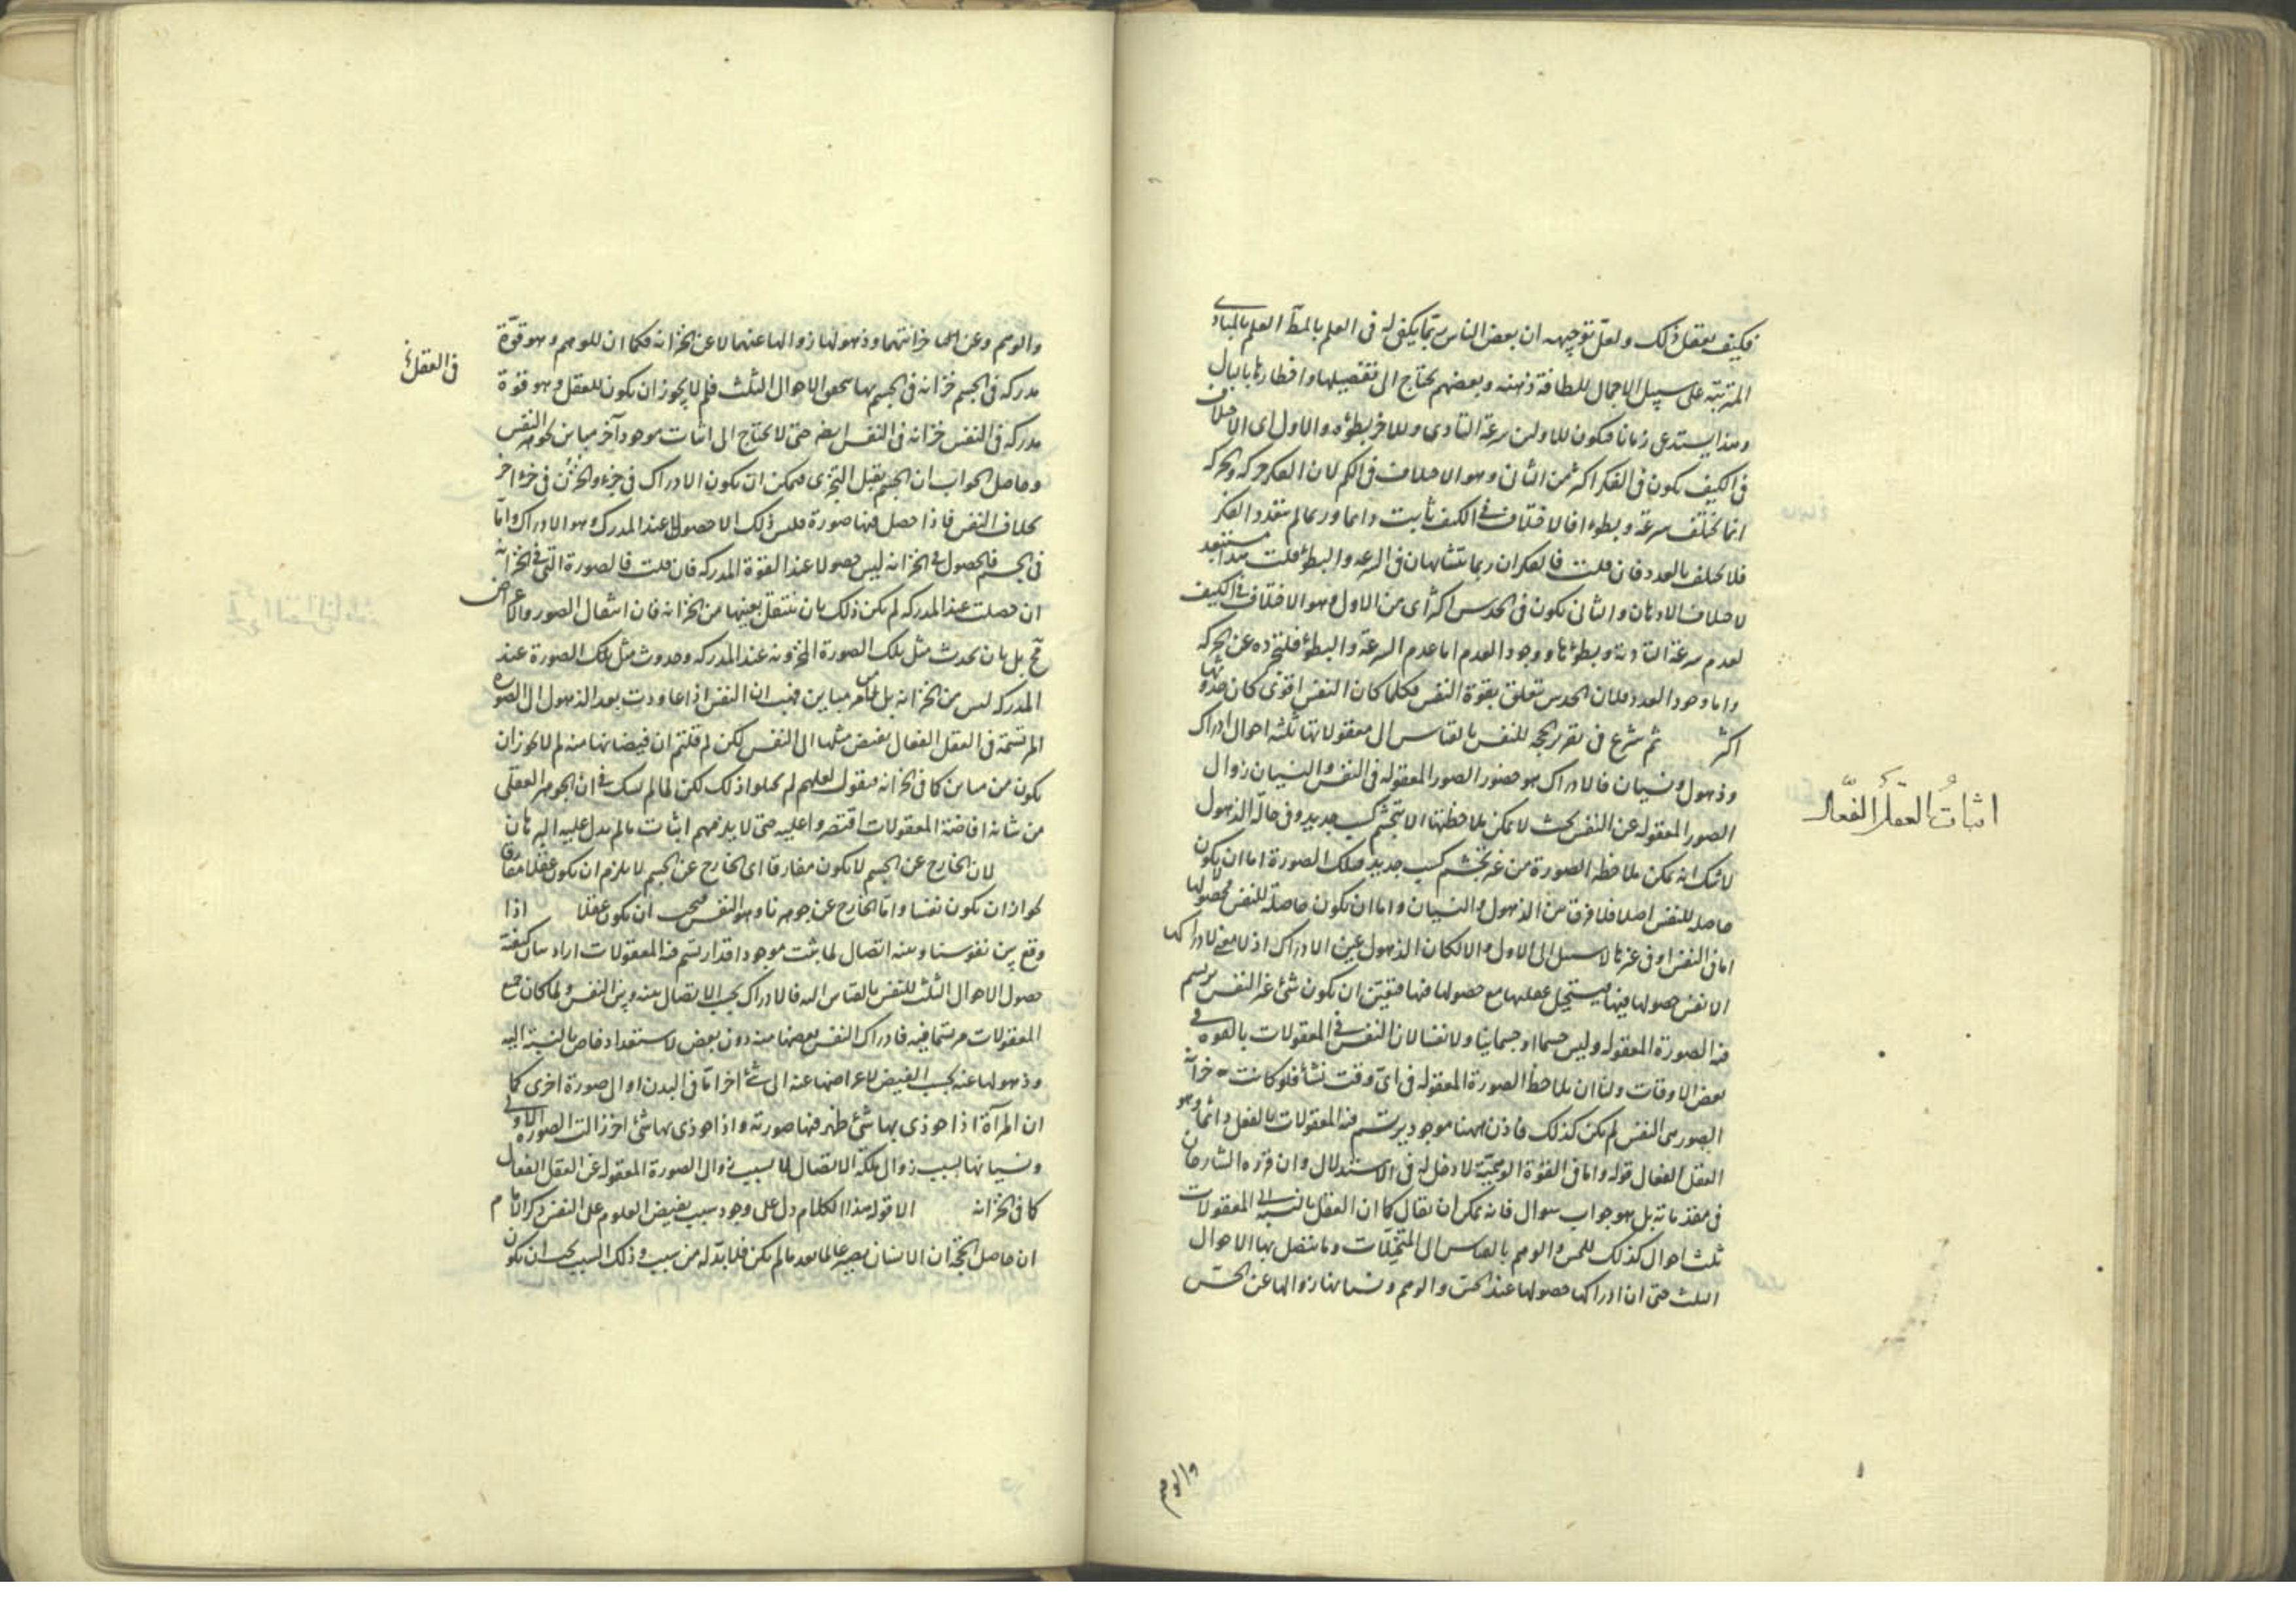 فكيف يعقل ذلك ولعل توجيهه ان بعض الناس ربما يكفى له فى العلم بالمط العلم بالمبادى
المترتبة على سبيل الاجمال للطافة ذهنه وبعضهم يحتاج الى تفصيلها واخطارها بالبال
وهذا يستدعى زمانا فيكون للاولين سرعة التادى وللاخر بطؤه والاول اى الاختلاف
فى الكيف يكون فى الفكر اكثر من الثانى وهو الاختلاف فى الكم لان الفكر حركة والحركة
انما تختلف سرعة وبطوءا فالاختلاف فى الكيف ثابت دائما وربما لم يتعدد الفكر
فلا يختلف بالعدد فان قلت فالفكران ربما يتشابهان فى السرعة والبطؤ قلت هذا مستبعد
لاختلاف الاذهان والثانى يكون فى الحدس اكثر اى من الاول وهو الاختلاف فى الكيف
لعدم سرعة التادية وبطؤها ووجود العدم اما عدم السرعة والبطؤ فلتجرده عن الحركة
واما وجود العدد فلان الحدس يتعلق بقوة النفس فكلما كان النفس اقوى كان حدوثها
اكثر ثم شرع فى تقرير الحجة للنفس بالقياس الى معقولاتها ثلثة احوال ادراك
وذهول ونسيان فالادراك هو حضور الصور المعقولة فى النفس والنسيان زوال
الصور المعقولة عن النفس بحيث لا يمكن ملاحظتها الا بتجشم كسب جديد وفى حالة الذهول
لا شك انه يمكن ملاحظة الصورة من غير تجشم كسب جديد فتلك الصورة اما ان لا يكون
حاصلة للنفس اصلا فلا فرق بين الذهول والنسيان واما ان يكون حاصلة للنفس فحصولها
اما فى النفس او فى غيرها لا سبيل الى الاول والا لكان الذهول عين الادراك اذ لا معنى لادراكها
الا نفس حصولها فيها فيستحيل غفلتها مع حصولها فيها فتعين ان يكون شئ غير النفس يرتسم
فيه الصورة المعقولة وليس جسما او جسمانيا ولا نفسا لان النفس فى المعقولات بالقوة فى
بعض الاوقات ولنا ان نلاحظ الصورة المعقولة فى اى وقت نشأ فلو كانت خزانة
الصور هى النفس لم يكن كذلك فاذن ههنا موجود يرتسم فيه المعقولات بالفعل دائما وهو
العقل الفعال قوله واما فى القوة الوهمية لا دخل له فى الاستدلال وان قرره الشارحان
فى مقدماته بل هو جواب سوال فانه يمكن ان يقال كما ان العقل بالنسبة الى المعقولات
ثلث احوال كذلك للحس والوهم بالقياس الى المتخيلات وما يتصل بها الاحوال
الثلث حتى ان ادراكها حصولها عند الحس والوهم ونسيانها زوالها عن الحس
اثبات العقل الفعال
والوهم
والوهم وعن خزانتهما وذهولها زوالها عنهما لا عن الخزانة فكما ان للوهم وهو قوة
مدركة فى الجسم خزانة فى الجسم بها يتحقق الاحوال الثلث فلم لا يجوز ان يكون للعقل وهو قوة
مدركة فى النفس خزانة فى النفس ايضه حتى لا يحتاج الى اثبات موجود آخر مباين لجوهر النفس
وحاصل الجواب ان الجسم يقبل التجزى فيمكن ان يكون الادراك فى جزء والخزن فى جزء آخر
بخلاف النفس فاذا حصل فيها صورة فليس ذلك الا حصولا عند المدرك وهو الادراك واما
فى الجسم فالحصول فى الخزانة ليس حصولا عند القوة المدركة فان قلت فالصورة التى فى الخزانة
ان حصلت عند المدركة لم يكن ذلك بان ينتقل بعينها من الخزانة فان انتقال الصور والاعراض
مح بل بان يحدث مثل تلك الصورة المخزونة عند المدركة وحدوث مثل تلك الصورة عند
المدركة ليس من الخزانة بل من امر مباين فهب ان النفس اذا عاودت بعد الذهول الى الصورة
المرتسمة فى العقل الفعال يفيض مثلها الى النفس لكن لم قلتم ان فيضانها منه لم لا يجوز ان
يكون من مباين كما فى الخزانة فنقول لعلهم لم يحلوا ذلك لكن لما لم نشك فى ان الجوهر العقلى
من شانه افاضة المعقولات اقتصروا عليه حتى لا يلزمهم اثبات ما لم يدل عليه البرهان
لان الخارج عن الجسم لا يكون مفارقا اى الخارج عن الجسم لا يلزم ان يكون عقلا مفارقا
لجواز ان يكون نفسا واما الخارج عن جوهرنا وهو النفس فيجب ان يكون عقلا اذا
وقع بين نفوسنا وبينه اتصال لما ثبت موجود قد ارتسم فيه المعقولات اراد بيان كيفية
حصول الاحوال الثلث للنفس بالقياس اليه فالادراك بحسب الاتصال بينه وبين النفس ولما كان جميع
المعقولات مرتسما فيه فادراك النفس بعضها منه دون بعض لاستعداد خاص بالنسبة اليه
وذهولها عنه بحسب الفيض لاعراضها عنه الى شئ آخر اما فى البدن او الى صورة اخرى كما
ان المرآة اذا حوذى بها شئ ظهر فيها صورته واذا حوذى بها شئ آخر زالت الصورة الاولى
ونسيانها بسبب زوال ملكة الاتصال لا بسبب زوال الصورة المعقولة عن العقل الفعال
كما فى الخزانة الا قوله هذا الكلام دل على وجود سبب يفيض العلوم على النفس ذكر الامام
ان حاصل الحجة ان الانسان يصير عالما بعد ما لم يكن فلا بد له من سبب وذلك السبب يجب ان يكون